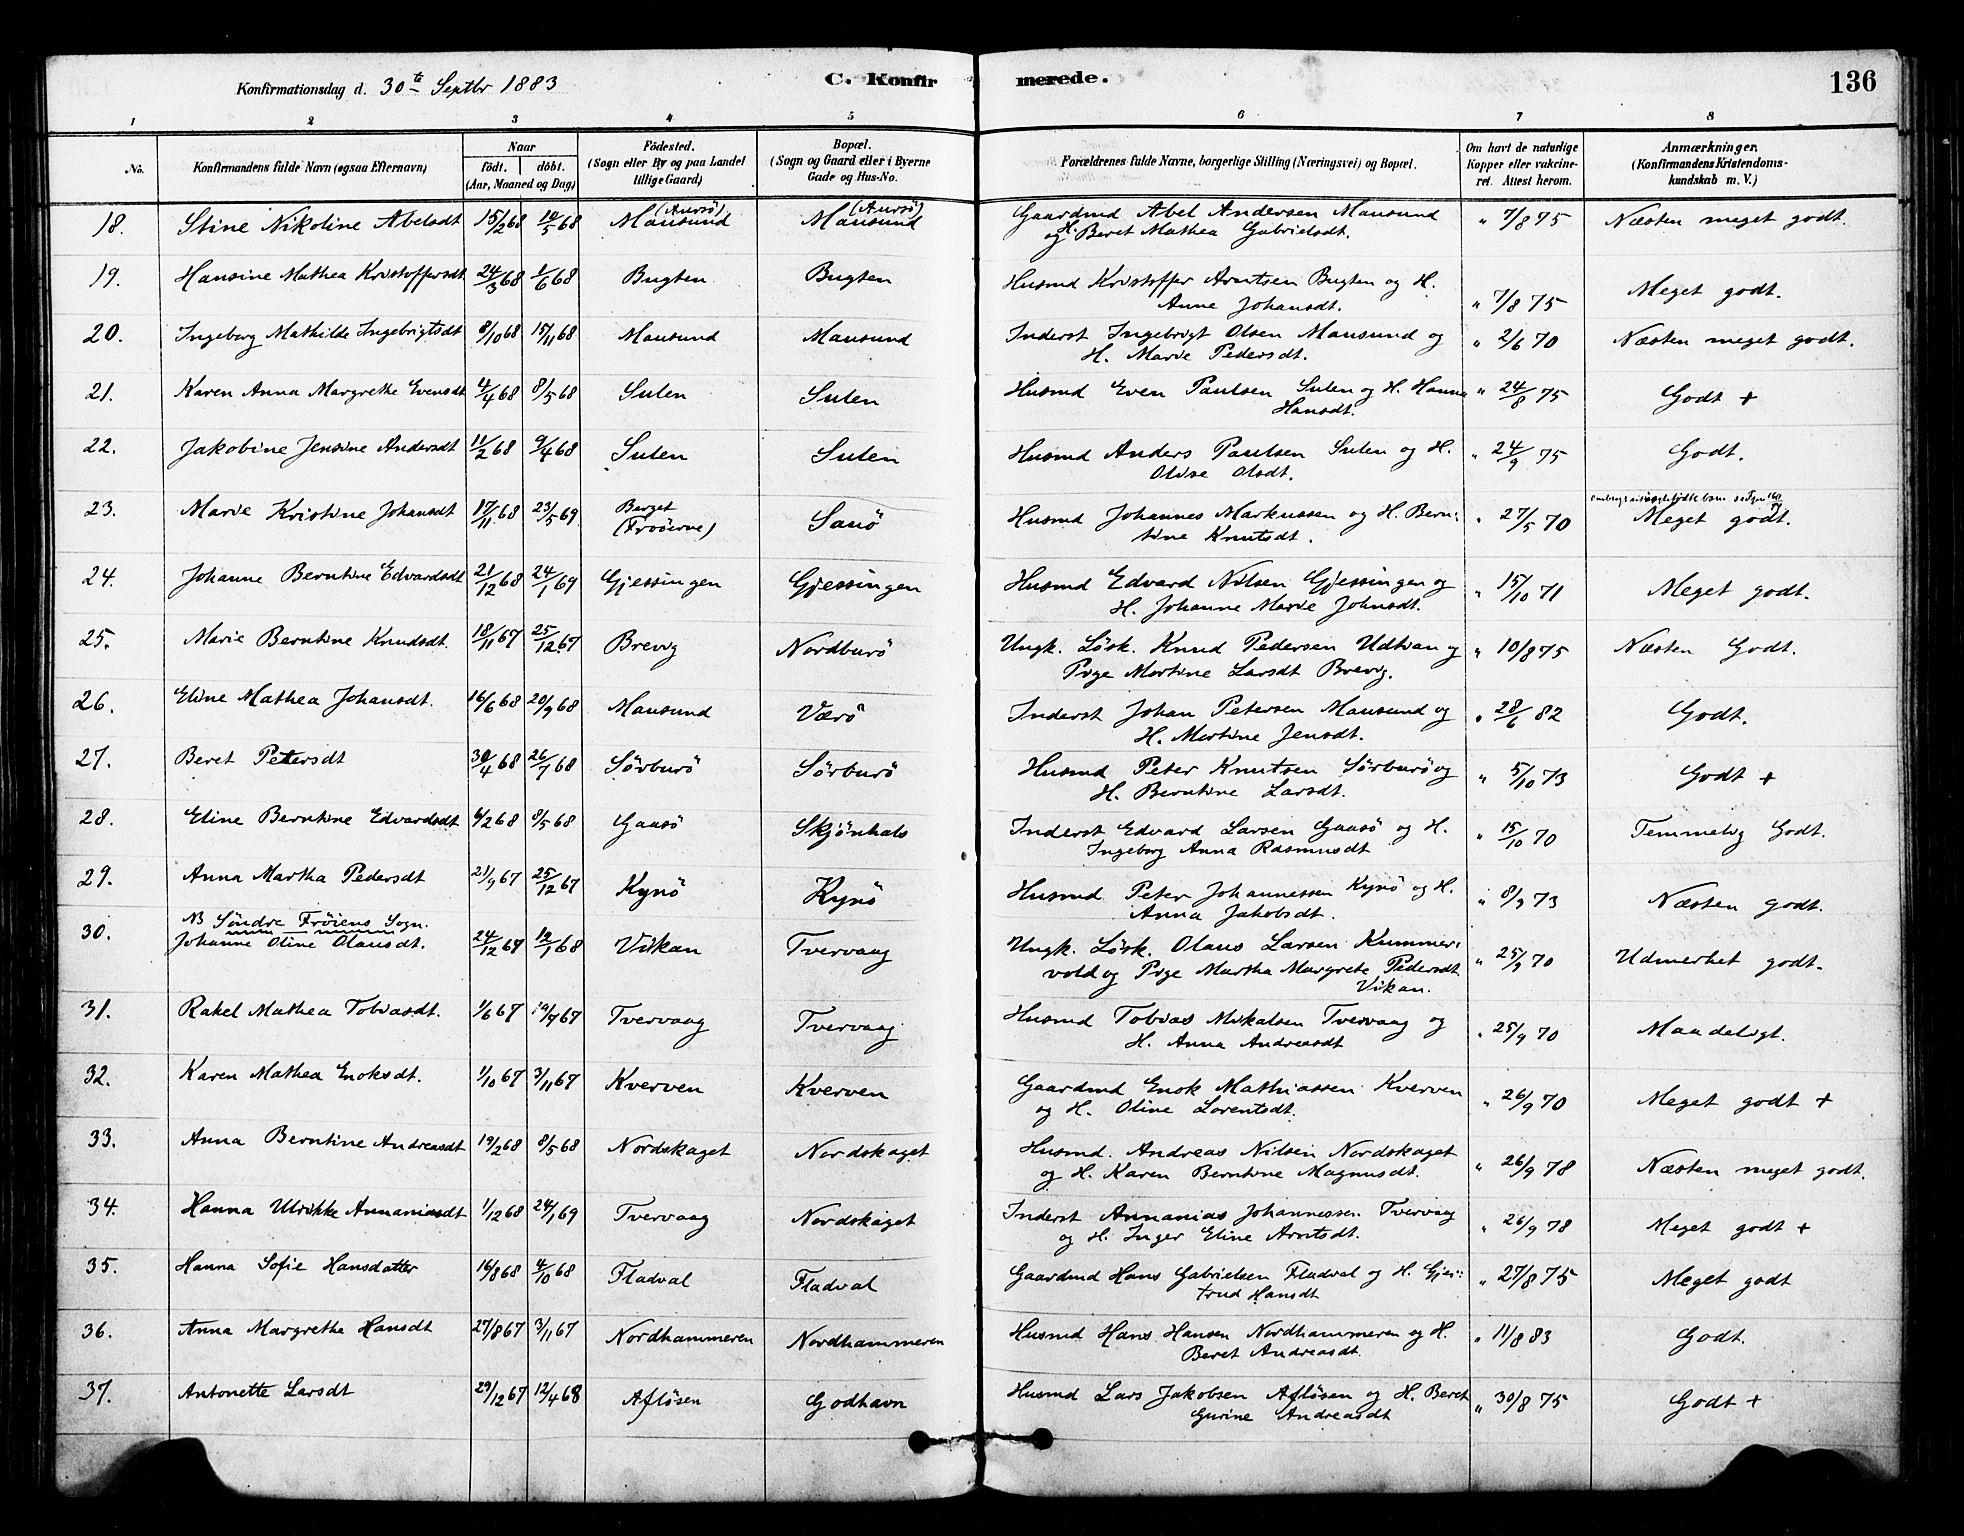 Konfirmationsdag d. 30te Septbr 1883
C. Konfirmerede.
136
1 2 3 4 5 6 7 8
No. Konfirmandens fulde Navn (ogsaa Efternavn) Naar født. døbt. (Aar, Maaned og Dag) Födested. (Sogn eller By og paa Landet tillige Gaard) Bopæl. (Sogn og Gaard eller i Byerne Gade og Hus-No. Forældrenes fulde Navne, borgerlige Stilling (Næringsvei) og Bopæl. Om havt de naturlige Kopper eller vakcineret. Attest herom. Anmærkninger. (Konfirmandens Kristendomskundskab m. V.)
18. Stine Nikoline Abelsdt 15/2 68 10/5 68 Mausund (Aursö) Mausund (Aursö) Gaardmd Abel Andersen Mausund og H. Beret Mathea Gabrielsdt. " 7/8 75 Næsten meget godt.
19. Hansine Mathea Kristoffersdt 24/3 68 1/6 68 Bugten Bugten Husmd Kristoffer Arntsen Bugten og H. Anne Johansdt. " 7/8 75 Meget godt.
20. Ingeborg Mathilde Ingebrigtsdt 8/10 68 15/11 68 Mausund Mausund Inderst Ingebrigt Olsen Mausund og H. Marie Pedersdt. " 2/6 70 Næsten meget godt.
21. Karen Anna Margrethe Evensdt 4/4 68 8/5 68 Sulen Sulen Husmd Even Paulsen Sulen og H. Hanna Hansdt. " 24/8 75 Godt +
22. Jakobine Jensine Andersdt 11/2 68 9/4 68 Sulen Sulen Husmd Anders Paulsen Sulen og H. Olise Olsdt. " 24/9 75 Godt.
23. Marie Kristine Johansdt 17/11 68 23/5 69 Berget (Froöerne) Sauö Husmd Johannes Markussen og H. Berntine Knutsdt. " 27/5 70 Meget godt.
24. Johanne Berntine Edvardsdt 21/12 68 24/1 69 Gjessingen Gjessingen Husmd Edvard Nilsen Gjessingen og H. Johanne Marie Johnsdt. " 15/10 71 Meget godt.
25. Marie Berntine Knudsdt. 18/11 67 25/12 67 Brevig Nordburö Ungk. Lösk. Knud Pedersen Udtian og Pige Martine Larsdt Brevig. " 10/8 75 Næsten Godt.
26. Eline Mathea Johansdt. 16/6 68 20/9 68 Mausund Værö Inderst Johan Petersen Mausund og H. Martine Jensdt. " 28/6 82 Godt.
27. Beret Petersdt 30/4 68 26/7 68 Sörburö Sörburö Husmd Peter Knutsen Sörburö og H. Berntine Larsdt. " 5/10 73 Godt +
28. Eline Berntine Edvardsdt 6/2 68 8/5 68 Gaasö Skjönhals Inderst Edvard Larsen Gaasö og H. Ingeborg Anna Rasmusdt " 15/10 70 Temmelig Godt.
29. Anna Martha Pedersdt 21/9 67 25/12 67 Kynö Kynö Husmd Peter Johannessen Kynö og H. Anna Jakobsdt. " 8/9 73 Næsten godt.
NB Söndre Fröiens Sogn.
30. Johanne Oline Olausdt. 24/12 67 12/1 68 Vikan Tvervaag Ungk. Lösk. Olaus Larsen Kummervold og Pige Martha Margrete Pedersdt Vikan. " 25/9 70 Udmerket godt.
31. Rakel Mathea Tobiasdt. 1/6 67 19/7 67 Tvervaag Tvervaag Husmd Tobias Mikalsen Tvervaag og H. Anna Andreasdt " 25/9 70 Maadeligt.
32. Karen Mathea Enoksdt. 1/10 67 3/11 67 Kverven Kverven Gaardmd Enok Mathiassen Kverven og H. Oline Lorentsdt. " 26/9 70 Meget godt +
33. Anna Berntine Andreasdt 19/2 68 8/5 68 Nordskaget Nordskaget Husmd. Andreas Nilsen Nordskaget og H. Karen Berntine Magnusdt. " 26/9 78 Næsten meget godt.
34. Hanna Ulrikke Annaniasdt 1/12 68 24/1 69 Tvervaag Nordskaget Inderst Annanias Johannessen Tvervaag og H. Inger Eline Arntsdt. " 26/9 78 Meget godt +
35. Hanna Sofie Hansdatter 16/8 68 4/10 68 Fladval Fladval Gaardmd Hans Gabrielsen Fladval og H. Gjertrud Hansdt " 27/8 75 Meget godt
36. Anna Margrethe Hansdt 27/8 67 3/11 67 Nordhammeren Nordhammeren Husmd Hans Hansen Nordhammeren og H. Beret Andreasdt. " 11/8 83 Godt.
37. Antonette Larsdt 29/12 67 12/4 68 Aflösen Godhavn Husmd Lars Jakobsen Aflösen og H. Beret Gurine Andreasdt " 30/8 75 Godt +